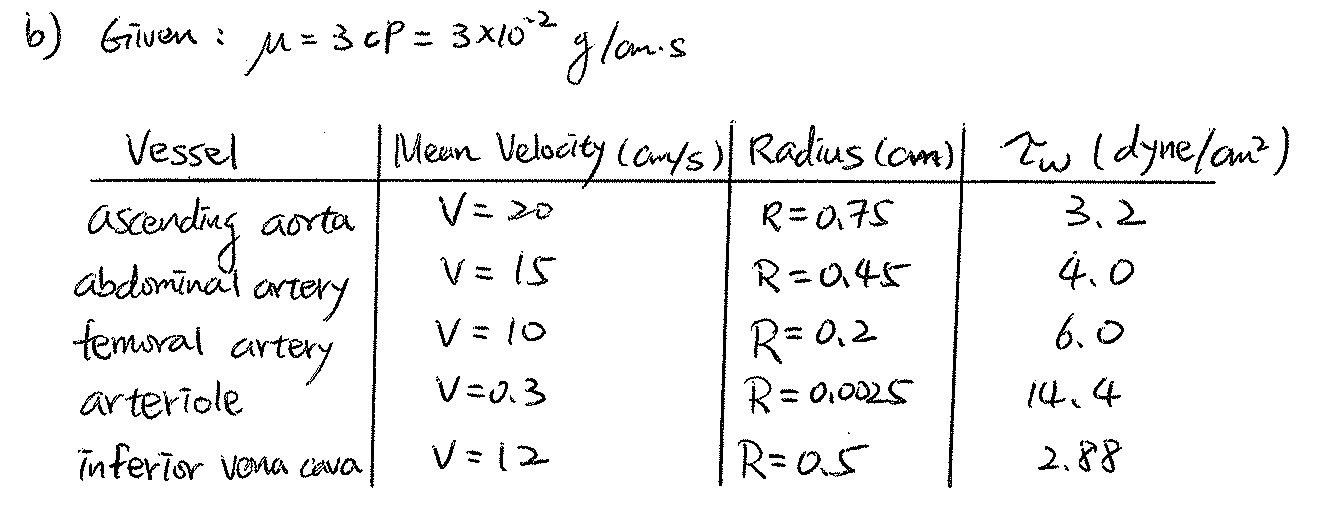 b) Given : μ = 3 cP = 3×10⁻² g/cm·s
Vessel | Mean Velocity (cm/s) | Radius (cm) | τw (dyne/cm²)
ascending aorta | V = 20 | R = 0.75 | 3.2
abdominal artery | V = 15 | R = 0.45 | 4.0
femoral artery | V = 10 | R = 0.2 | 6.0
arteriole | V = 0.3 | R = 0.0025 | 14.4
inferior vena cava | V = 12 | R = 0.5 | 2.88